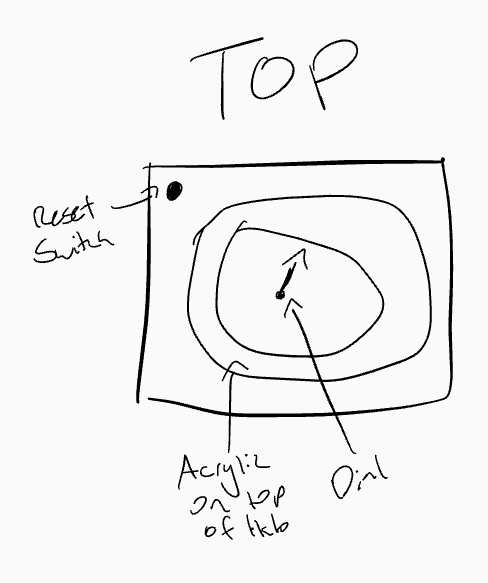 TOP
Reset
Switch
Acrylic
on top
of
Dial